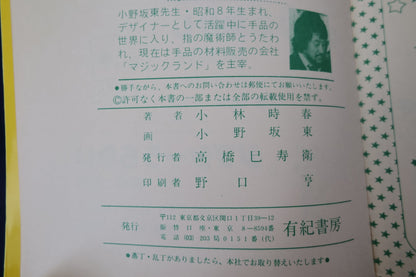 小野坂東先生・昭和8年生まれ、
デザイナーとして活躍中に手品の
世界に入り、指の魔術師とうたわ
れ、現在は手品の材料販売の会社
「マジックランド」を主宰。
●勝手ながら、本書へのお問い合わせは郵便にてお願いいたします。
©許可なく本書の一部または全部の転載使用を禁ず。
著者 小林時春
画 小野坂東
発行者 高橋巳寿衛
印刷者 野口亨
発行
〒112 東京都文京区関口1丁目39―12
振替口座・東京 8―8594番
電話 (03) 203局0151番(代)
有紀書房
●落丁・乱丁がありましたら、本社でお取り替えいたします。